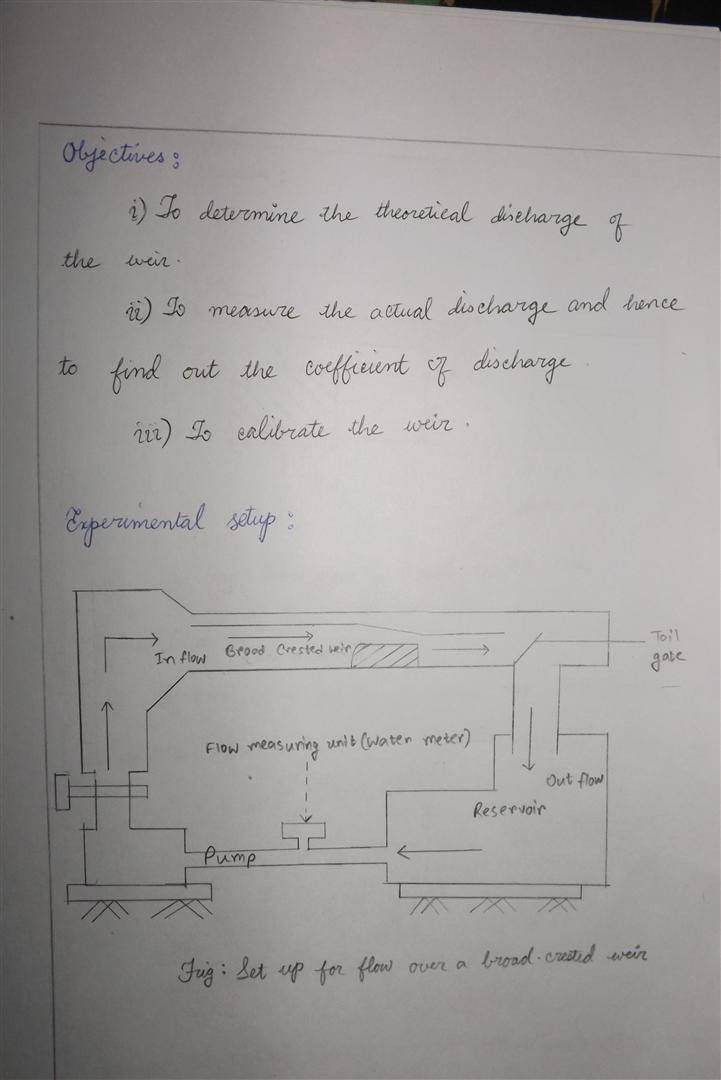 Objectives:
i) To determine the theoretical discharge of
the weir.
ii) To measure the actual discharge and hence
to find out the coefficient of discharge.
iii) To calibrate the weir.
Experimental setup:
In flow
Broad Crested weir
Tail
gate
Flow measuring unit (Water meter)
Out flow
Reservoir
Pump
Fig: Set up for flow over a broad-crested weir